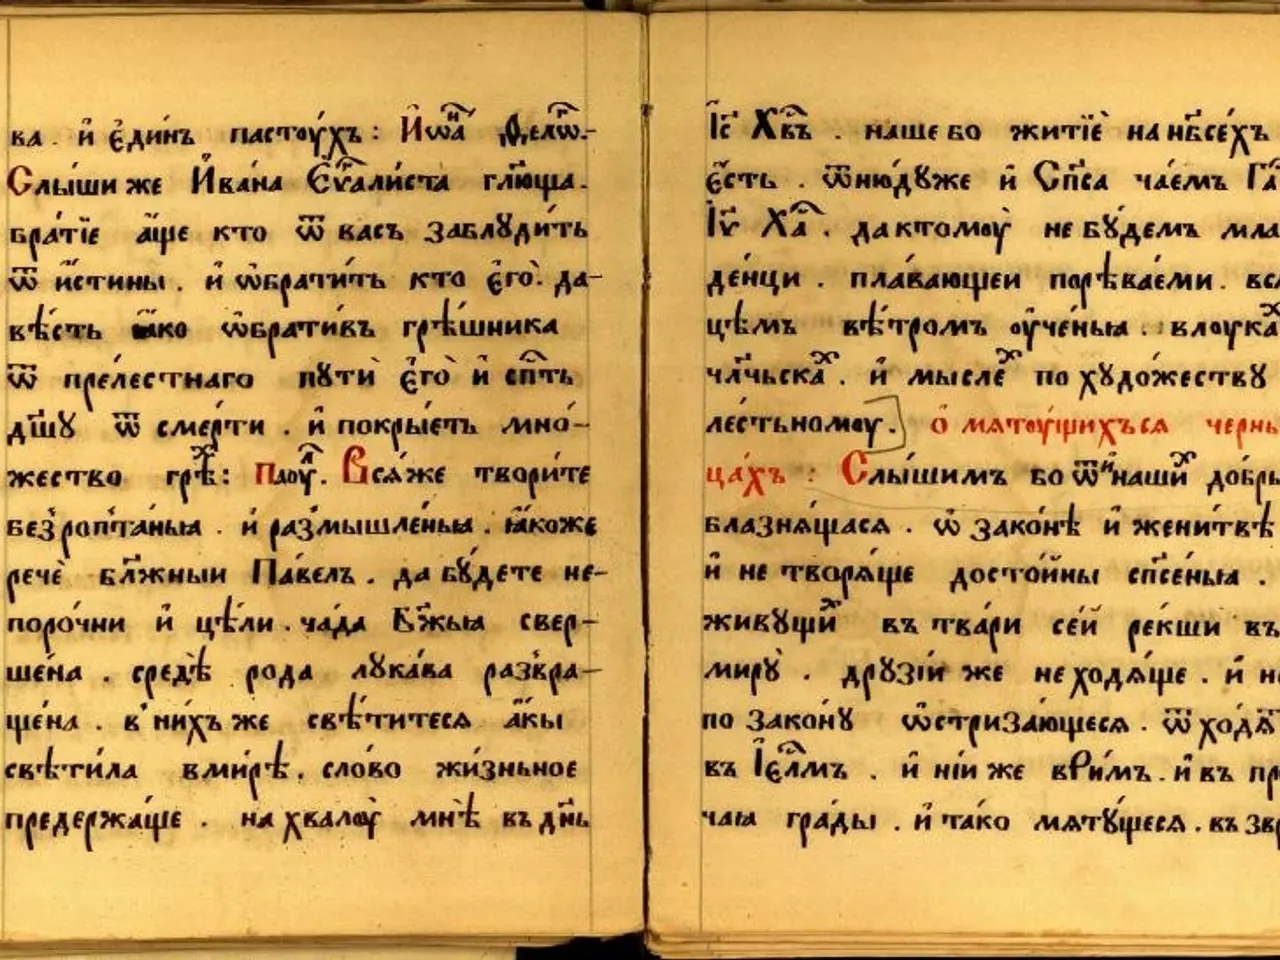 ва . и҆ є҆ди́нъ пастоу́хъ : И҆ѡа҃ Ѳелѡ҃.–
Слы́ши же И҆ва́на Єѵⷢ҇али́ста гл҃юща.
бра́тїе а҆́ще кто ѿ васъ заблꙋди́ть
ѿ и҆́стины . и҆ ѡ҆брати́тъ кто є҆го̀. да–
вѣ́сть ꙗ҆́ко ѡ҆брати́въ грѣ́шника
ѿ преле́стнаго пꙋтѝ є҆го̀ и҆ сп҃тъ
дш҃ꙋ ѿ сме́рти . и҆ покры́еть мно́–
жество грѣⷯ : Паѹⷧ. Вся́же твори́те
безро́птанья . и҆ размышле́нья . ꙗ҆́коже
рече̂ бл҃жныи Па́велъ . да бꙋ́дете не–
поро́чни и҆ цѣ́ли . ча́да Бж҃ья свер–
ше́на . средѣ̀ рода лꙋка́ва развра–
ще́на . в҆ни́хъ же свѣ́титеся а҆́кы
свѣти́ла вми́рѣ . сло́во жи́зньное
предержа́ще . на хвалоу̀ мнѣ̀ въ дн҃ь
І҆с҃ Хв҃ъ . наше бо житїѐ на нб҃сѐхъ
є҆́сть . ѿню́дꙋже и҆ Сп҃са ча́емъ Га҃
І҆ѵ҃ Ха҃ . да ктомоу̀ не бꙋ́демъ мла
де́нци . пла́вающеи порѣва́еми . вся
цѣмъ вѣ́тромъ оу҆че́нья . влоукаⷯ
чл҃чьскаⷯ . и҆ мыслеⷯ по хꙋдо́жествꙋ
ле́стьномоу . ѻ҆ мятоу́щихъся черньⷰ
ца́хъ : Слы́шимъ бо ѿ и҆наши́ⷯ до́бры
блазня́щася . ѡ҆ зако́нѣ и҆ жени́твѣ
и҆ не творя́ще досто́йны сп҃се́нья .
живꙋщи́ⷯ въ тва́ри се́й ре́кши въ
мирꙋ̀ . дрꙋзі́и же не ходя́ще . и҆ не
по зако́нꙋ ѡ҆стриза́ющеся . ѿходѧⷮ
въ І҆ел҃мъ . и҆ ні́и же вРи́мъ . и҆ въ пр
чая гра́ды . и҆ та́ко мятꙋ́щеся . въ звр